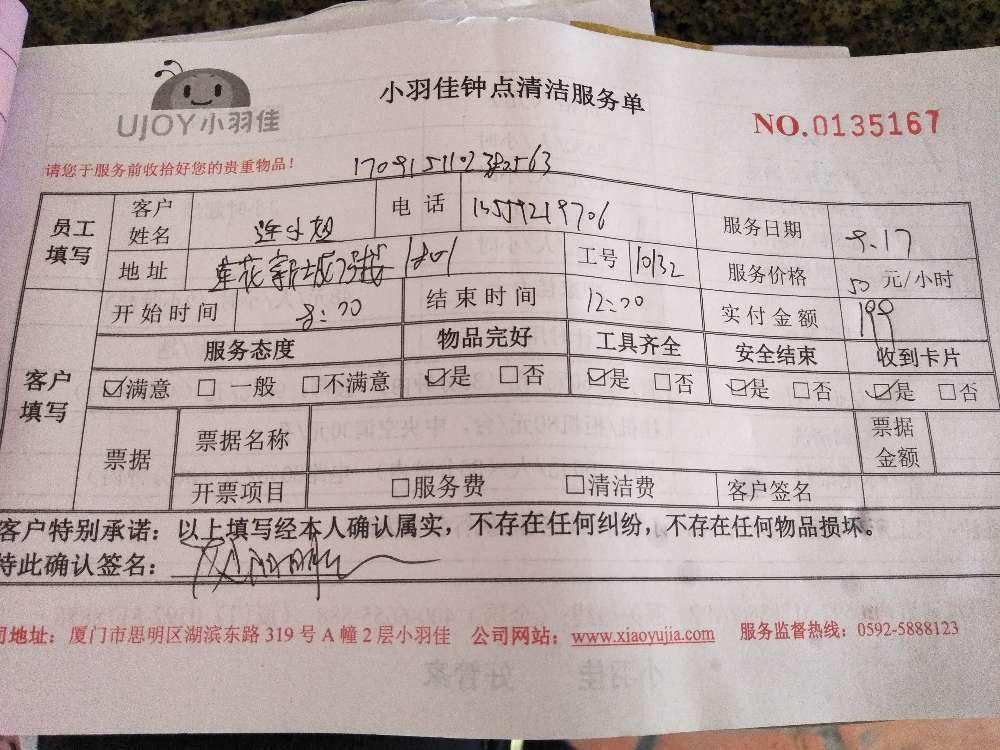 UJOY小羽佳
小羽佳钟点清洁服务单
NO.0135167
请您于服务前收拾好您的贵重物品！
员工填写 客户姓名 连小姐 电话 服务日期 9.17
地址 1801 工号 10132 服务价格 50 元/小时
客户填写 开始时间 8:00 结束时间 12:00 实付金额 199
服务态度 物品完好 工具齐全 安全结束 收到卡片
☑满意 □一般 □不满意 ☑是 □否 ☑是 □否 ☑是 □否 ☑是 □否
票据 票据名称 票据金额
开票项目 □服务费 □清洁费 客户签名
客户特别承诺：以上填写经本人确认属实，不存在任何纠纷，不存在任何物品损坏。
特此确认签名：
司地址：厦门市思明区湖滨东路 319 号 A 幢 2 层小羽佳 公司网站：www.xiaoyujia.com 服务监督热线：0592-5888123